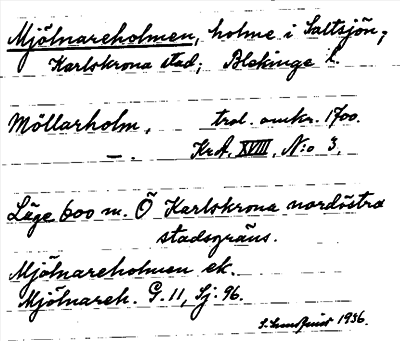 Mjölnareholmen, holme i Saltsjön,
Karlskrona stad; Blekinge l.
Möllarholm, trol. omkr. 1700.
— . KrA. XVIII, N:o 3.
Läge 600 m. Ö Karlskrona nordöstra
stadsgräns.
Mjölnareholmen ek.
Mjölnareh. G. 11, Sj. 96.
1936.